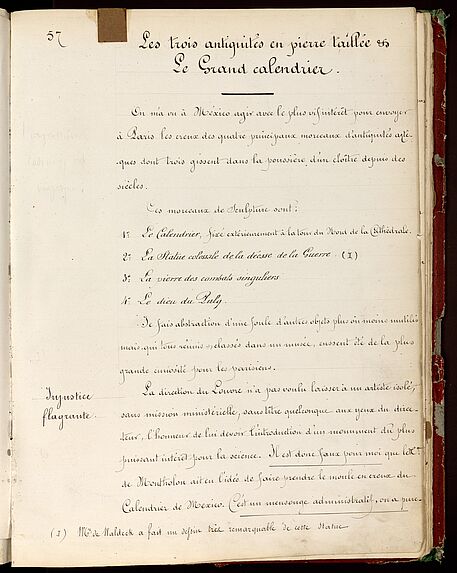 57
Les trois antiquités en pierre taillée &
Le Grand calendrier.
On m'a vu à México agir avec le plus vif intérêt pour envoyer
à Paris les creux des quatre principaux morceaux d'antiquités azté-
ques dont trois gissent dans la poussière d'un cloître depuis des
siècles.
Ces morceaux de sculpture sont:
1º. Le Calendrier, fixé extérieurement à la tour du Nord de la Cathédrale.
2º. La Statue colossale de la déesse de la Guerre. (1)
3º. La pierre des combats singuliers
4º. Le dieu du Pulq.
Je fais abstraction d'une foule d'autres objets plus ou moins mutilés
mais qui tous réunis & classés dans un musée, eussent été de la plus
grande curiosité pour les parisiens.
Injustice
flagrante.
La direction du Louvre n'a pas voulu laisser à un artiste isolé,
sans mission ministérielle, sans titre quelconque aux yeux du direc-
teur, l'honneur de lui devoir l'introduction d'un monument du plus
puissant intérêt pour la science. Il est donc faux pour moi que
de Montholon ait eu l'idée de faire prendre le moule en creux du
Calendrier de Mexico. C'est un mensonge administratif, on a
(1) Mr de Waldeck a fait un dessin très remarquable de cette statue